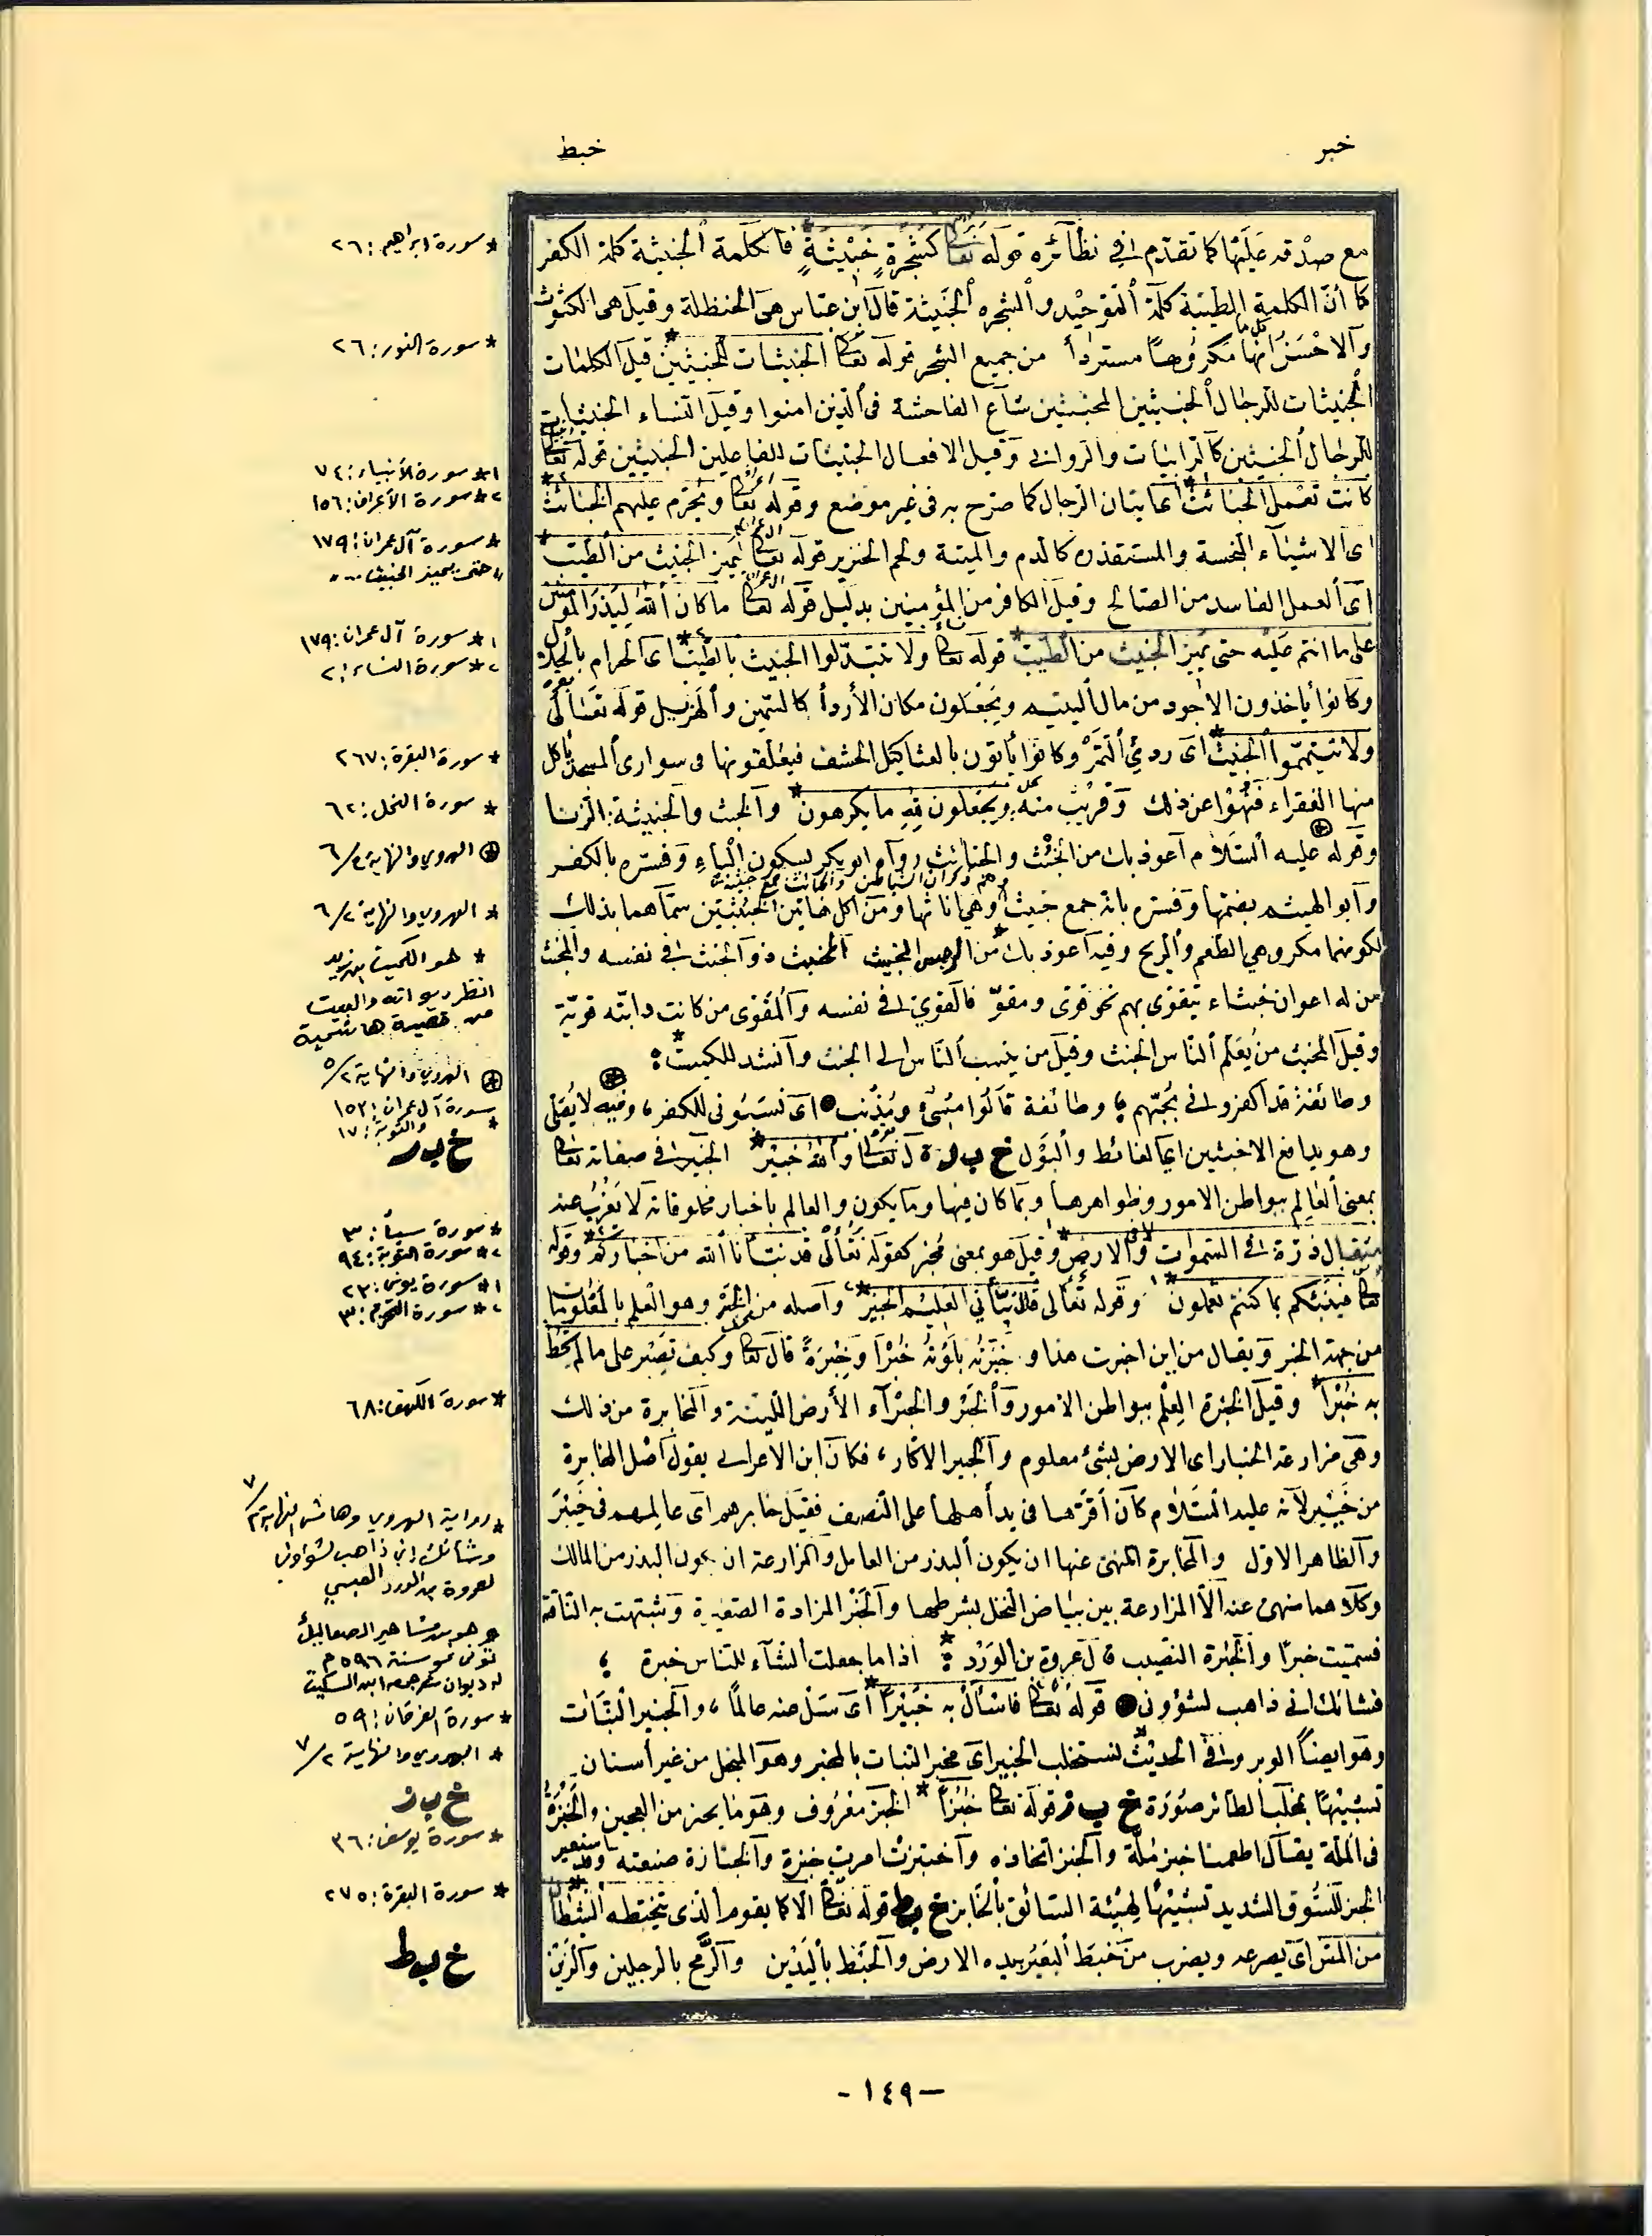 خبر
خبط
مع صدقه عليها كما تقدم في نظائره قوله تعالى كشجرة خبيثة فالكلمة الخبيثة كلمة الكفر
كما أن الكلمة الطيبة كلمة التوحيد والشجرة الخبيثة قال ابن عباس هي الحنظلة وقيل هي الكشوث
والاحسن انها كل مكروها مستردأ من جميع الشجر قوله تعالى الخبيثات للخبيثين قيل الكلمات
الخبيثات للرجال الخبيثين المحبين شاع الفاحشة في الذين امنوا وقيل النساء الخبيثات
للرجال الخبيثين كالزانيات والزواني وقيل الافعال الخبيثات للفاعلين الخبيثين قوله تعالى
كانت تعمل الخبائث اي اتيان الرجال كما صرح به في غير موضع وقوله تعالى ويحرم عليهم الخبائث
اى الاشياء النجسة والمستقذره كالدم والميتة ولحم الخنزير قوله تعالى ليميز الخبيث من الطيب
اى العمل الفاسد من الصالح وقيل الكافر من المؤمنين بدليل قوله تعالى ما كان الله ليذر المؤمنين
على ما انتم عليه حتى يميز الخبيث من الطيب قوله تعالى ولا تتبدلوا الخبيث بالطيب اى الحرام بالحلال
وكانوا يأخذون الاجود من مال اليتيم ويجعلون مكان الأردأ كالسمين والهزيل قوله تعالى
ولا تيمموا الخبيث اى رديئ التمر وكانوا يأتون بالعثاكيل الحشف فيعلقونها في سوارى المسجد ياكل
منها الفقراء فنهوا عن ذلك وقريب منه ويجعلون لله ما يكرهون والخبث والخبيثة الزنا
وقوله عليه السلام أعوذ بك من الخبث والخبائث رواه ابو بكر بسكون الباء وفسره بالكفر
وابو الهيثم بضمها وفسره بانه جمع خبيث وهم ذكران الشياطين والخبائث جمع خبيثة وهي اناثها ومن اكل هاتين الخبيثتين سماهما بذلك
لكونهما مكروهي الطعم والريح وفيه اعوذ بك من الرجس الخبيث المخبث فالخبيث ذو الخبث في نفسه والمخبث
من له اعوان خبثاء يتقوى بهم نحو قوى ومقو فالقوي في نفسه والمقوى من كانت دابته قوية
وقيل المخبث من يعلم الناس الخبث وقيل من ينسب الناس الى الخبث وانشد للكميت
وطائفة قد اكفروني بحبهم وطائفة قالوا مسئ ومذنب اى نسبوني للكفر وفيه لا يصلى
وهو يدافع الاخبثين اي الغائط والبول خ ب ر قال تعالى والله خبير الخبير في صفاته تعالى
بمعنى العالم ببواطن الامور وظواهرها وبما كان فيها وما يكون والعالم باخبار مخلوقاته لا يعزب عنه
مثقال ذرة في السموات ولا في الارض وقيل هو بمعنى مخبر كقوله تعالى قد نبأنا الله من اخباركم وقوله
تعالى فينبئكم بما كنتم تعملون وقوله تعالى قال نبأني العليم الخبير واصله من الخبر وهو العلم بالمعلومات
من جهة الخبر ويقال من اين اخبرت هذا و خبرته بلوته خبرا وخبرة قال تعالى وكيف تصبر على ما لم تحط
به خبرا وقيل الخبرة العلم ببواطن الامور والخبر والخبرآء الأرض اللينة والمخابرة من ذلك
وهي مزارعة الخبار اى الارض بشئ معلوم والخبير الاكار فكان ابن الاعرابي يقول اصل المخابرة
من خيبر لانه عليه السلام كان اقرها في يد أهلها على النصف فقيل خابرهم اى عاملهم في خيبر
والظاهر الاول والمخابرة المنهى عنها ان يكون البذر من العامل والمزارعة ان يكون البذر من المالك
وكلاهما منهى عنه الا المزارعة بين بياض النخل بشرطها والخبر المزادة الصغيرة وشبهت به الناقة
فسميت خبرا والخبرة النصيب قال عروة بن الورد اذا ما جعلت الشاء للناس خبرة
فشانك اني ذاهب لشؤوني قوله تعالى فاسأل به خبيرا اى سئل عنه عالما، والخبير النبات
وهو ايضا الوبر وفي الحديث نستخلب الخبير اى مخبر النبات بالمخبر وهو المنجل من غير أسنان
تشبيها بمخلب الطائر صورة خ ب ز قوله تعالى خبزا الخبز معروف وهو ما يخبز من العجين والخبزة
في الملة يقال اطعمنا خبز ملة والخبز اتخاذه واختبزت امرت خبزه والخبازة صنعته واستعير
الخبز للسوق الشديد تشبيها لهيئة السائق بالخابز خ ب ط قوله تعالى الا كما يقوم الذى يتخبطه الشيطان
من المس اى يصرعه ويضرب من خبط البعير بيده الارض والخبط باليدين والرمح بالرجلين والزبن
* سورة ابراهيم: ٢٦
* سورة النور: ٢٦
١* سورة الأنبياء: ٧٤
٢* سورة الأعراف: ١٥٦
* سورة آل عمران: ١٧٩
" حتى يميز الخبيث ... "
١* سورة آل عمران: ١٧٩
٢* سورة النساء: ٢
* سورة البقرة: ٢٦٧
* سورة النحل: ٦٢
⊛ الهروي والنهاية ٢/٦
* الهروي والنهاية ٢/٦
* هو الكميت بن زيد
انظر ديوانه والبيت
من قصيدة هاشمية
⊛ الهروي والنهاية ٢/٥
* سورة آل عمران: ١٥٣
والتوبة: ١٧
خ ب ر
١* سورة سبأ: ٣
٢* سورة التوبة: ٩٤
١* سورة يونس: ٢٣
٢* سورة التحريم: ٣
* سورة الكهف: ٦٨
* رواية الهروي وهامش النهاية ٢/٧
وشانك اني ذاهب لشؤوني
لعروة بن الورد العبسي
* وهو من مشاهير الصعاليك
توفى نحو سنة ٥٩٦م
له ديوان شرحه ابن السكيت
* سورة الفرقان: ٥٩
* الهروي والنهاية ٢/٧
خ ب ز
* سورة يوسف: ٣٦
* سورة البقرة: ٢٧٥
خ ب ط
- ١٤٩ -